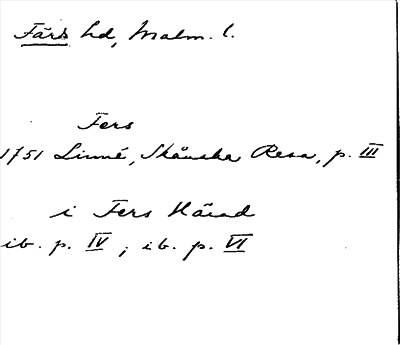 Färs hd, Malm. l.
Fers
1751 Linné, Skånska Resa, p. III
i Fers Härad
ib. p. IV ; ib. p. VI